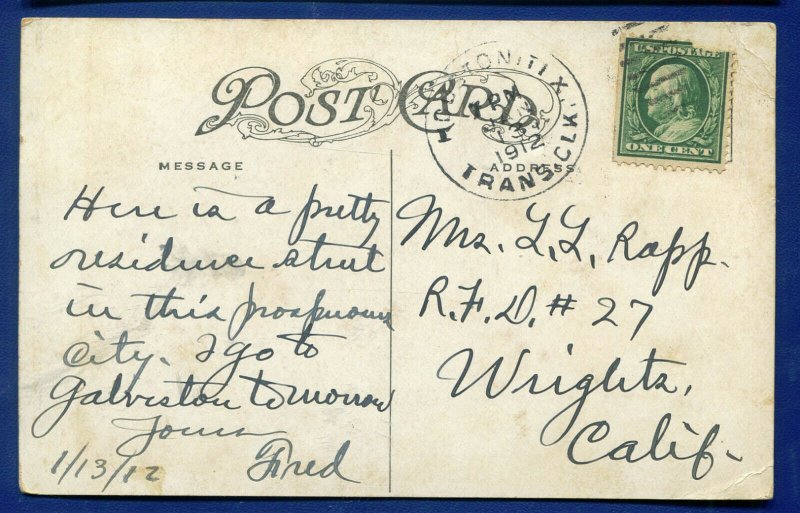 POST CARD
MESSAGE
ADDRESS
TRANS. CLK.
1912
U.S. POSTAGE
ONE CENT
Here is a pretty
residence street
in this prosperous
city. I go to
Galveston tomorrow
Yours
Fred
1/13/12
Mr. L. L. Rapp.
R.F.D. # 27
Wrights,
Calif.